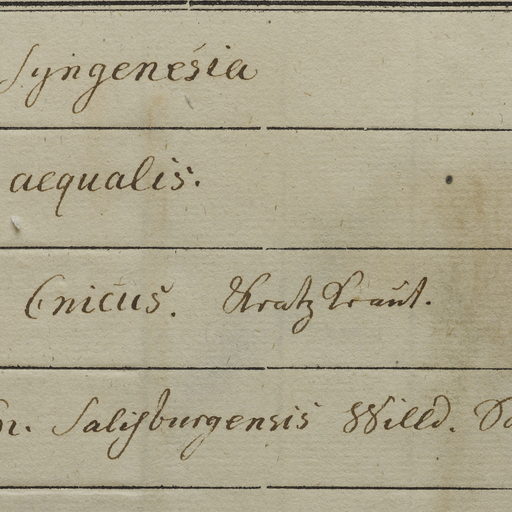 Syngenesia
aequalis.
Cnicus. Kratzkraut.
Salisburgensis Willd.